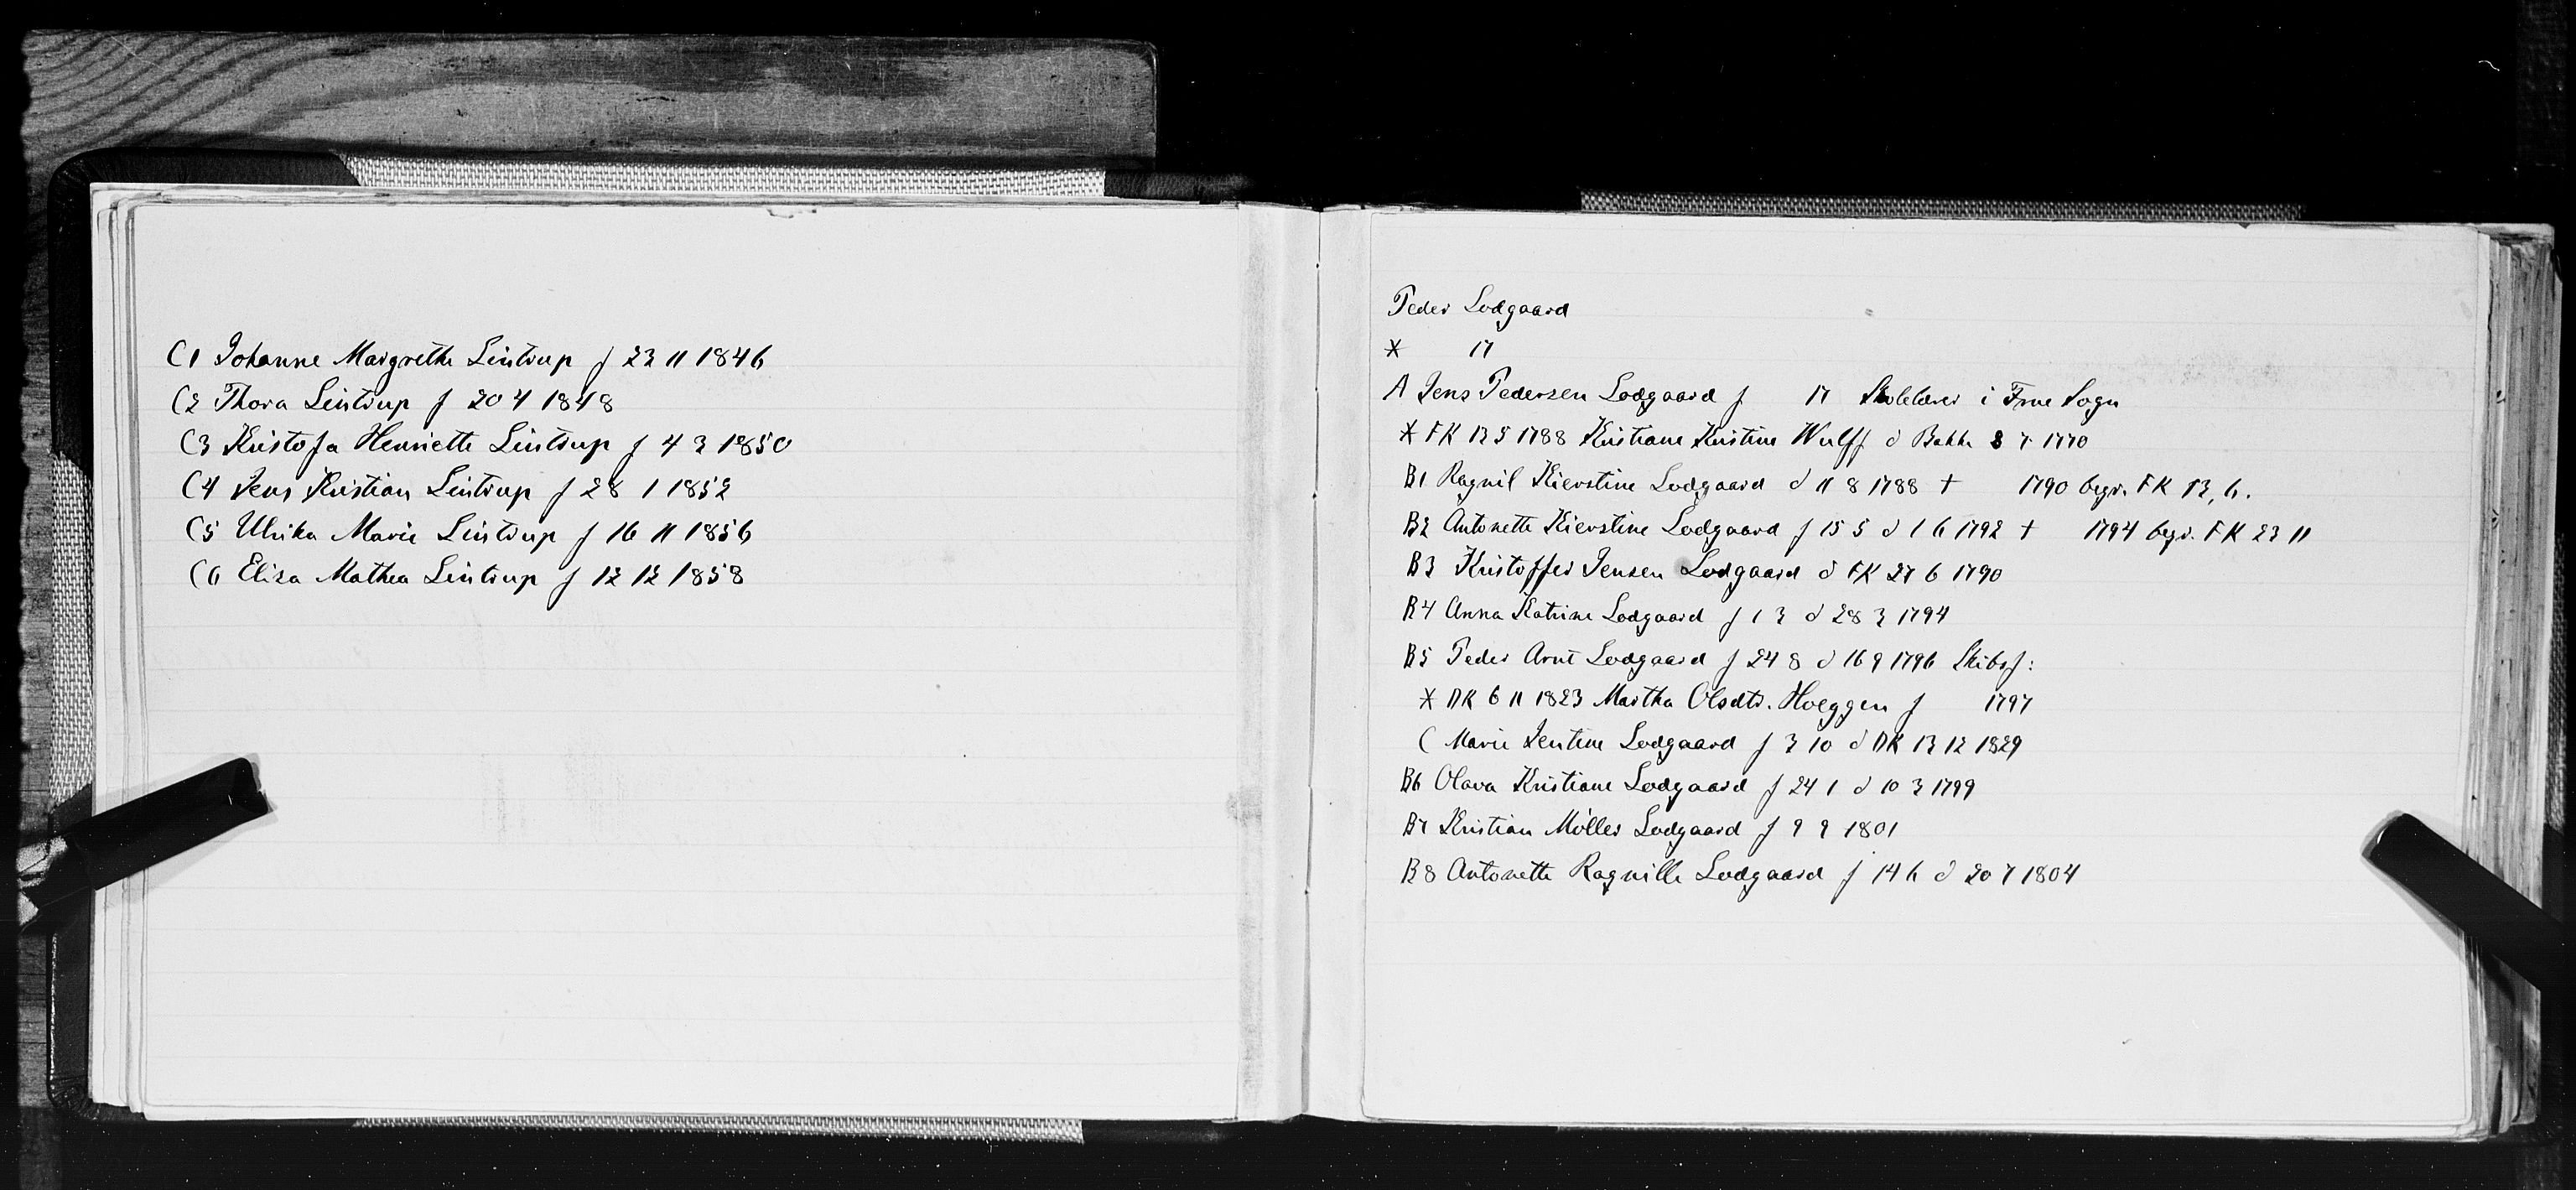 C1 Johanne Margrethe Lintrup f 23 11 1846
C2 Thora Lintrup f 20 4 1848
C3 Kristofa Henriette Lintrup f 4 3 1850
C4 Jens Kristian Lintrup f 28 1 1852
C5 Ulrika Marie Lintrup f 16 11 1856
C6 Elisa Mathea Lintrup f 12 12 1858
Peder Lodgaard
* 17
A Jens Pedersen Lodgaard f 17 Skolelærer i Frue Sogn
* FK 13 5 1788 Kristiane Kristine Wulff d Bakke 8 7 1770
B1 Ragnil Kierstine Lodgaard d 11 8 1788 † 1790 begr. FK 13, 6.
B2 Antonette Kierstine Lodgaard f 15 5 d 1 6 1792 † 1794 begr. FK 23 11
B3 Kristoffer Jensen Lodgaard d FK 27 6 1790
B4 Anna Katrine Lodgaard f 1 3 d 28 3 1794
B5 Peder Arnt Lodgaard f 24 8 d 16 9 1796 Skibsf:
* DK 6 11 1823 Martha Olsdtr. Hoeggen f 1797
C Marie Jentine Lodgaard f 3 10 d DK 13 12 1829
B6 Olava Kristiane Lodgaard f 24 1 d 10 3 1799
B7 Kristian Møller Lodgaard f 9 9 1801
B8 Antonette Ragnille Lodgaard f 14 6 d 20 7 1804